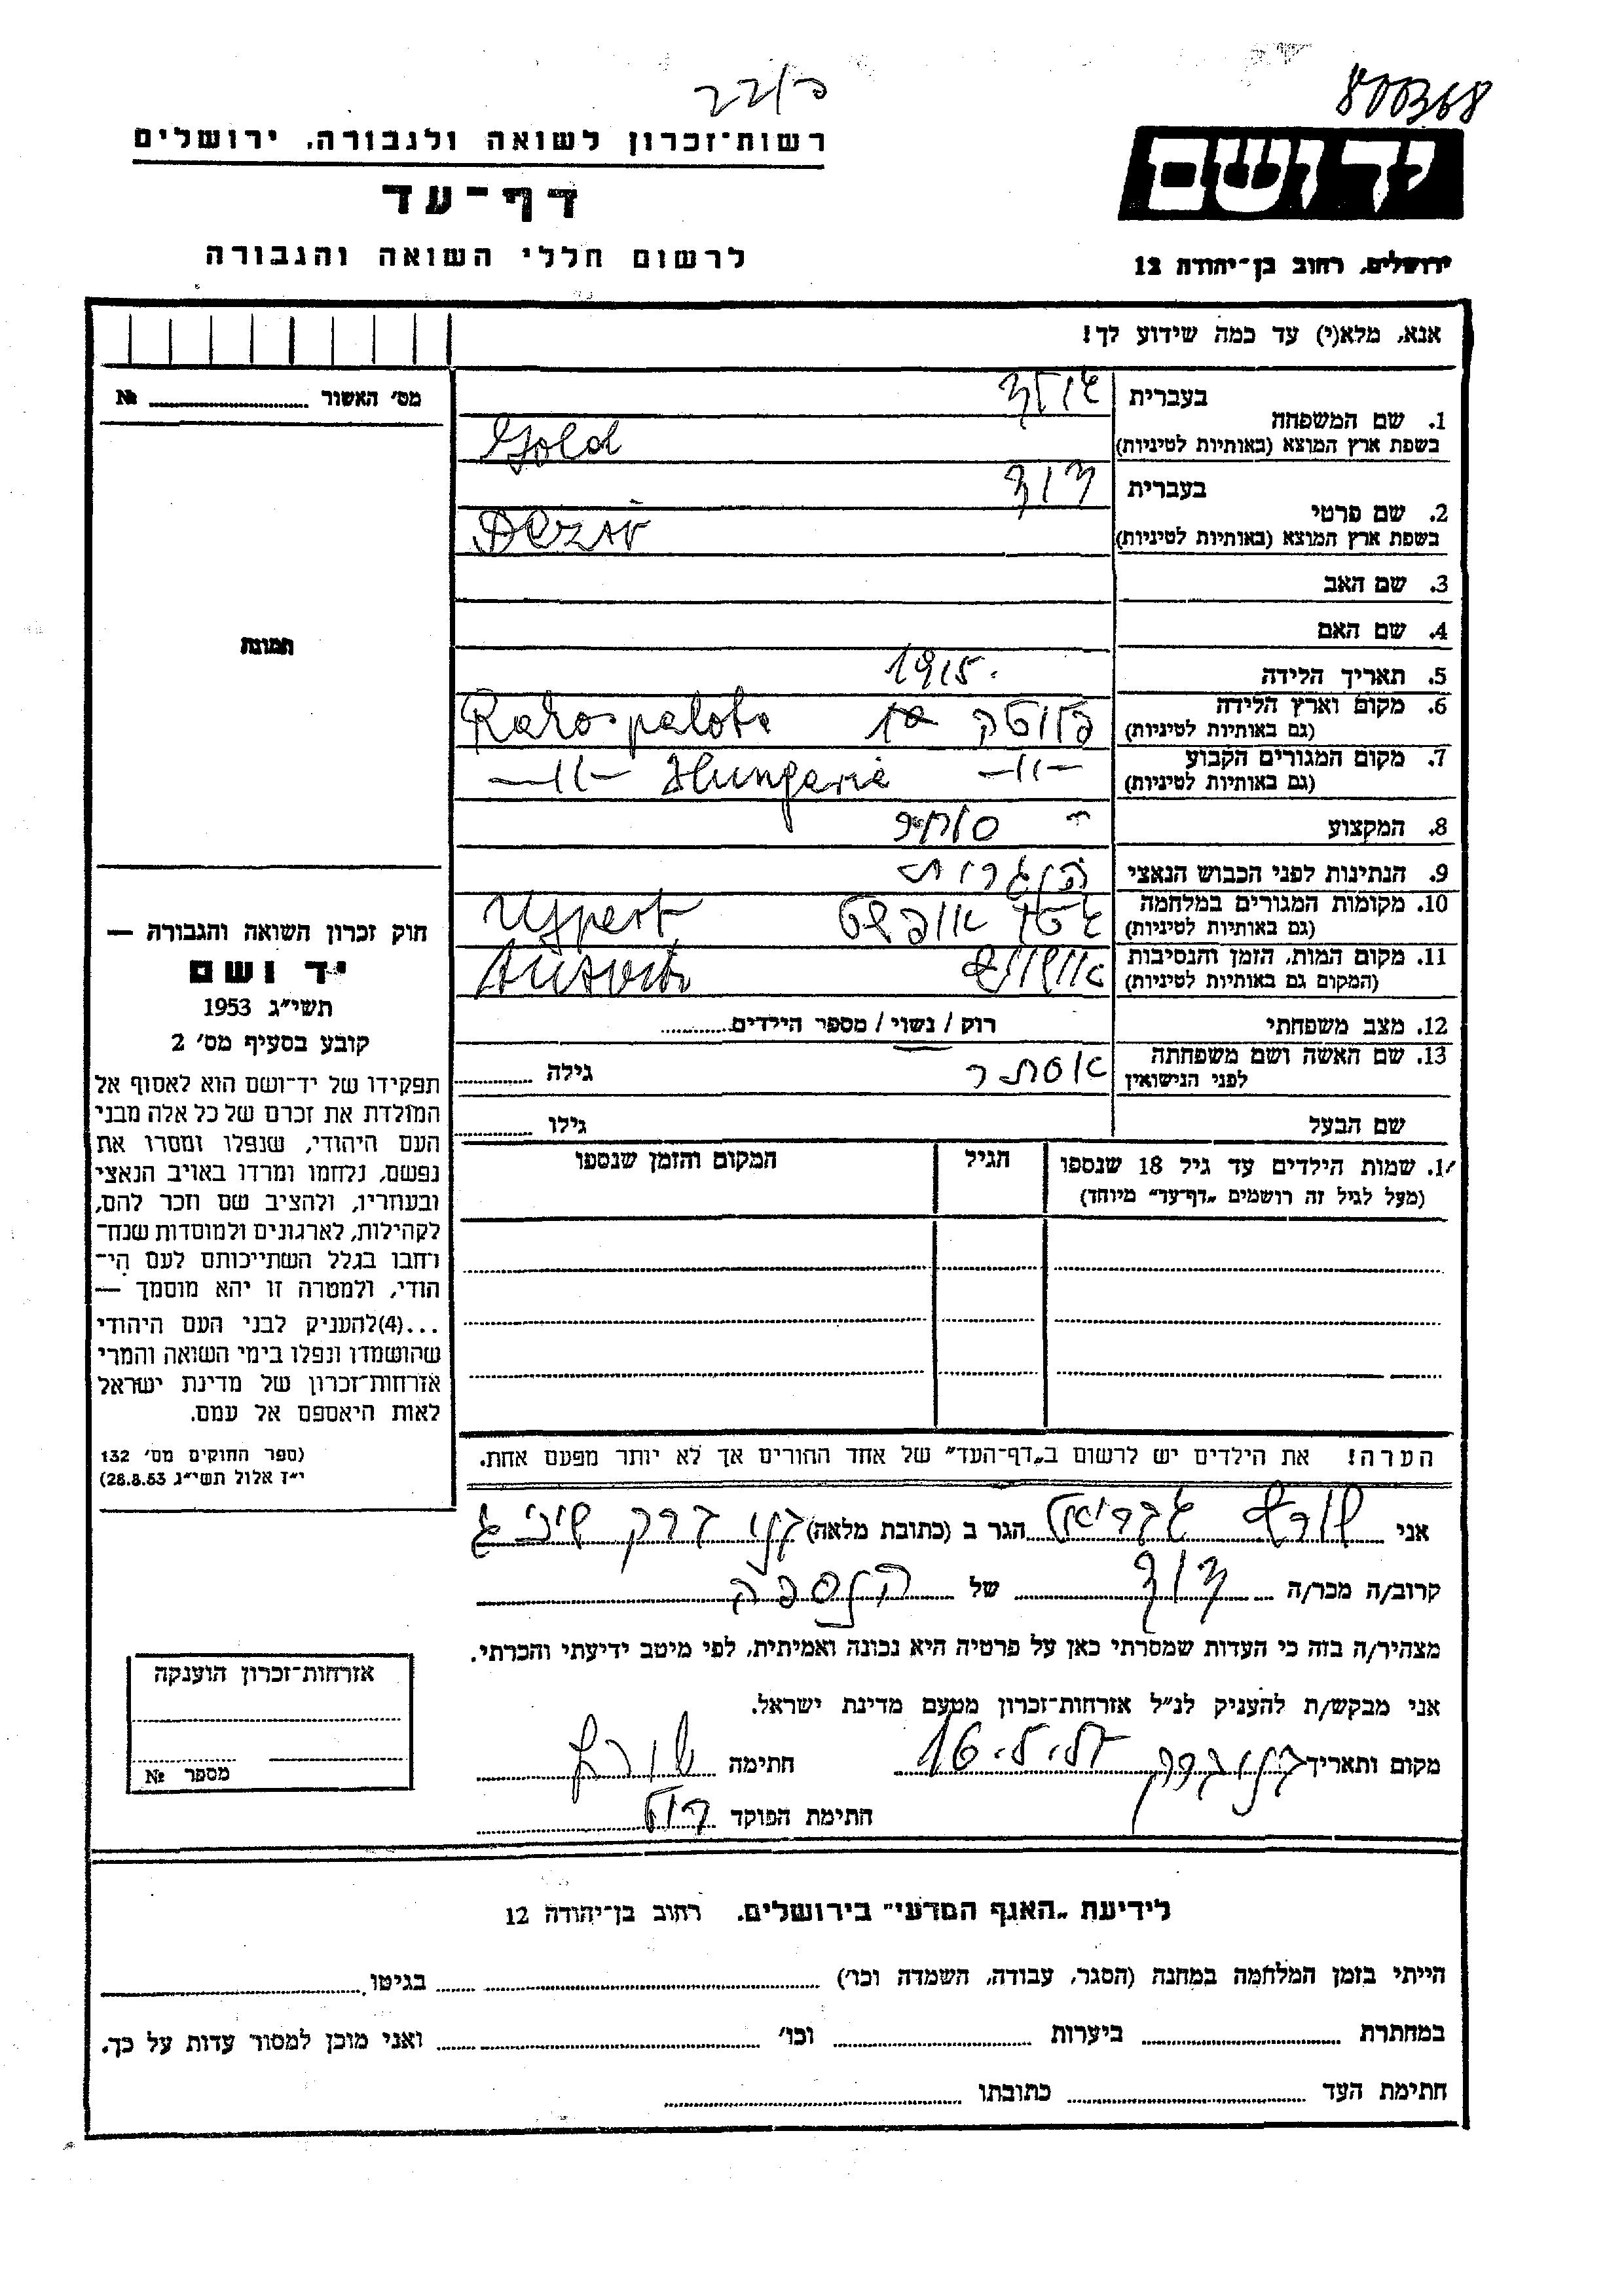 800368
רשות־זכרון לשואה ולגבורה, ירושלים
יד ושם
דף־עד
לרשום חללי השואה והגבורה
ירושלים, רחוב בן־יהודה 12
אנא, מלא(י) עד כמה שידוע לך!
מס׳ האשור № 
1. שם המשפחה
בעברית גולד
בשפת ארץ המוצא (באותיות לטיניות) Gold
2. שם פרטי
בעברית דוד
בשפת ארץ המוצא (באותיות לטיניות)
3. שם האב
4. שם האם
תמונה
5. תאריך הלידה 1915.
6. מקום וארץ הלידה
(גם באותיות לטיניות) Rakospalota
7. מקום המגורים הקבוע
(גם באותיות לטיניות) —״— Hungaria —״—
8. המקצוע סוחר
9. הנתינות לפני הכבוש הנאצי הונגרית
10. מקומות המגורים במלחמה
(גם באותיות לטיניות) גטו אויפשט Ujpest
11. מקום המות, הזמן והנסיבות
(המקום גם באותיות לטיניות) אושויץ
12. מצב משפחתי רוק / נשוי / מספר הילדים
13. שם האשה ושם משפחתה
לפני הנישואין אסתר גילה
שם הבעל גילו
1. שמות הילדים עד גיל 18 שנספו הגיל המקום והזמן שנספו
(מעל לגיל זה רושמים „דף־עד״ מיוחד)
הערה! את הילדים יש לרשום ב„דף־העד״ של אחד ההורים אך לא יותר מפעם אחת.
חוק זכרון השואה והגבורה —
יד ושם
תשי״ג 1953
קובע בסעיף מס׳ 2
תפקידו של יד־ושם הוא לאסוף אל
המולדת את זכרם של כל אלה מבני
העם היהודי, שנפלו ומסרו את
נפשם, נלחמו ומרדו באויב הנאצי
ובעוזריו, ולהציב שם וזכר להם,
לקהילות, לארגונים ולמוסדות שנח־
רחבו בגלל השתייכותם לעם הי־
הודי, ולמטרה זו יהא מוסמך —
...(4)להעניק לבני העם היהודי
שהושמדו ונפלו בימי השואה והמרי
אזרחות־זכרון של מדינת ישראל
לאות היאספם אל עמם.
(ספר החוקים מס׳ 132
י״ז אלול תשי״ג 28.8.53)
אני גבריאל הגר ב (כתובת מלאה) בני ברק
קרוב/ה מכר/ה דוד של הנספה
מצהיר/ה בזה כי העדות שמסרתי כאן על פרטיה היא נכונה ואמיתית, לפי מיטב ידיעתי והכרתי.
אני מבקש/ת להעניק לנ״ל אזרחות־זכרון מטעם מדינת ישראל.
מקום ותאריך בני ברק חתימה
חתימת הפוקד
אזרחות־זכרון הוענקה
מספר №
לידיעת „האגף המדעי״ בירושלים, רחוב בן־יהודה 12
הייתי בזמן המלחמה במחנה (הסגר, עבודה, השמדה וכו׳) בגיטו
במחתרת ביערות וכו׳ ואני מוכן למסור עדות על כך.
חתימת העד כתובתו